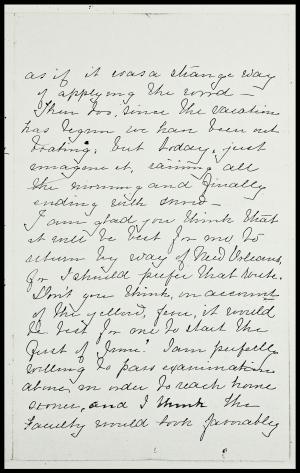 as if it was a strange way
of applying the word —
Then too, since the vacation
has begun we have been out
boating, but today, just
imagine it, raining all
the morning and finally
ending with snow —
I am glad you think that
it will be best for me to
return by way of New Orleans,
for I should prefer that route.
Don't you think, on account
of the yellow, fever, it would
be best for me to start the
first of June? I am perfectly
willing to pass examinations
alone, in order to reach home
sooner, and I think the
Faculty would look favorably